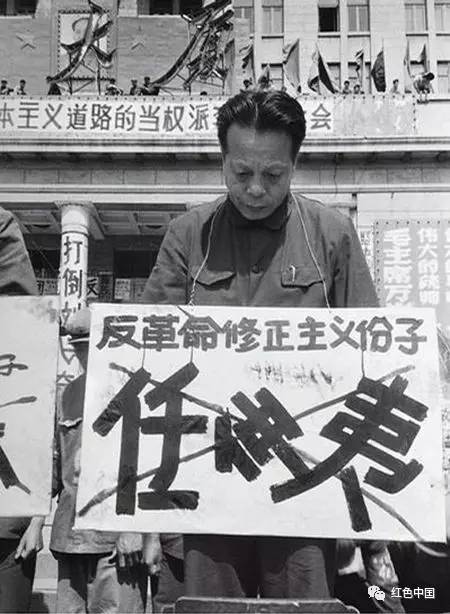 本主义道路的当权派
会
打倒
伟大的
毛主席万
反革命修正主义份子
任仲夷
红色中国